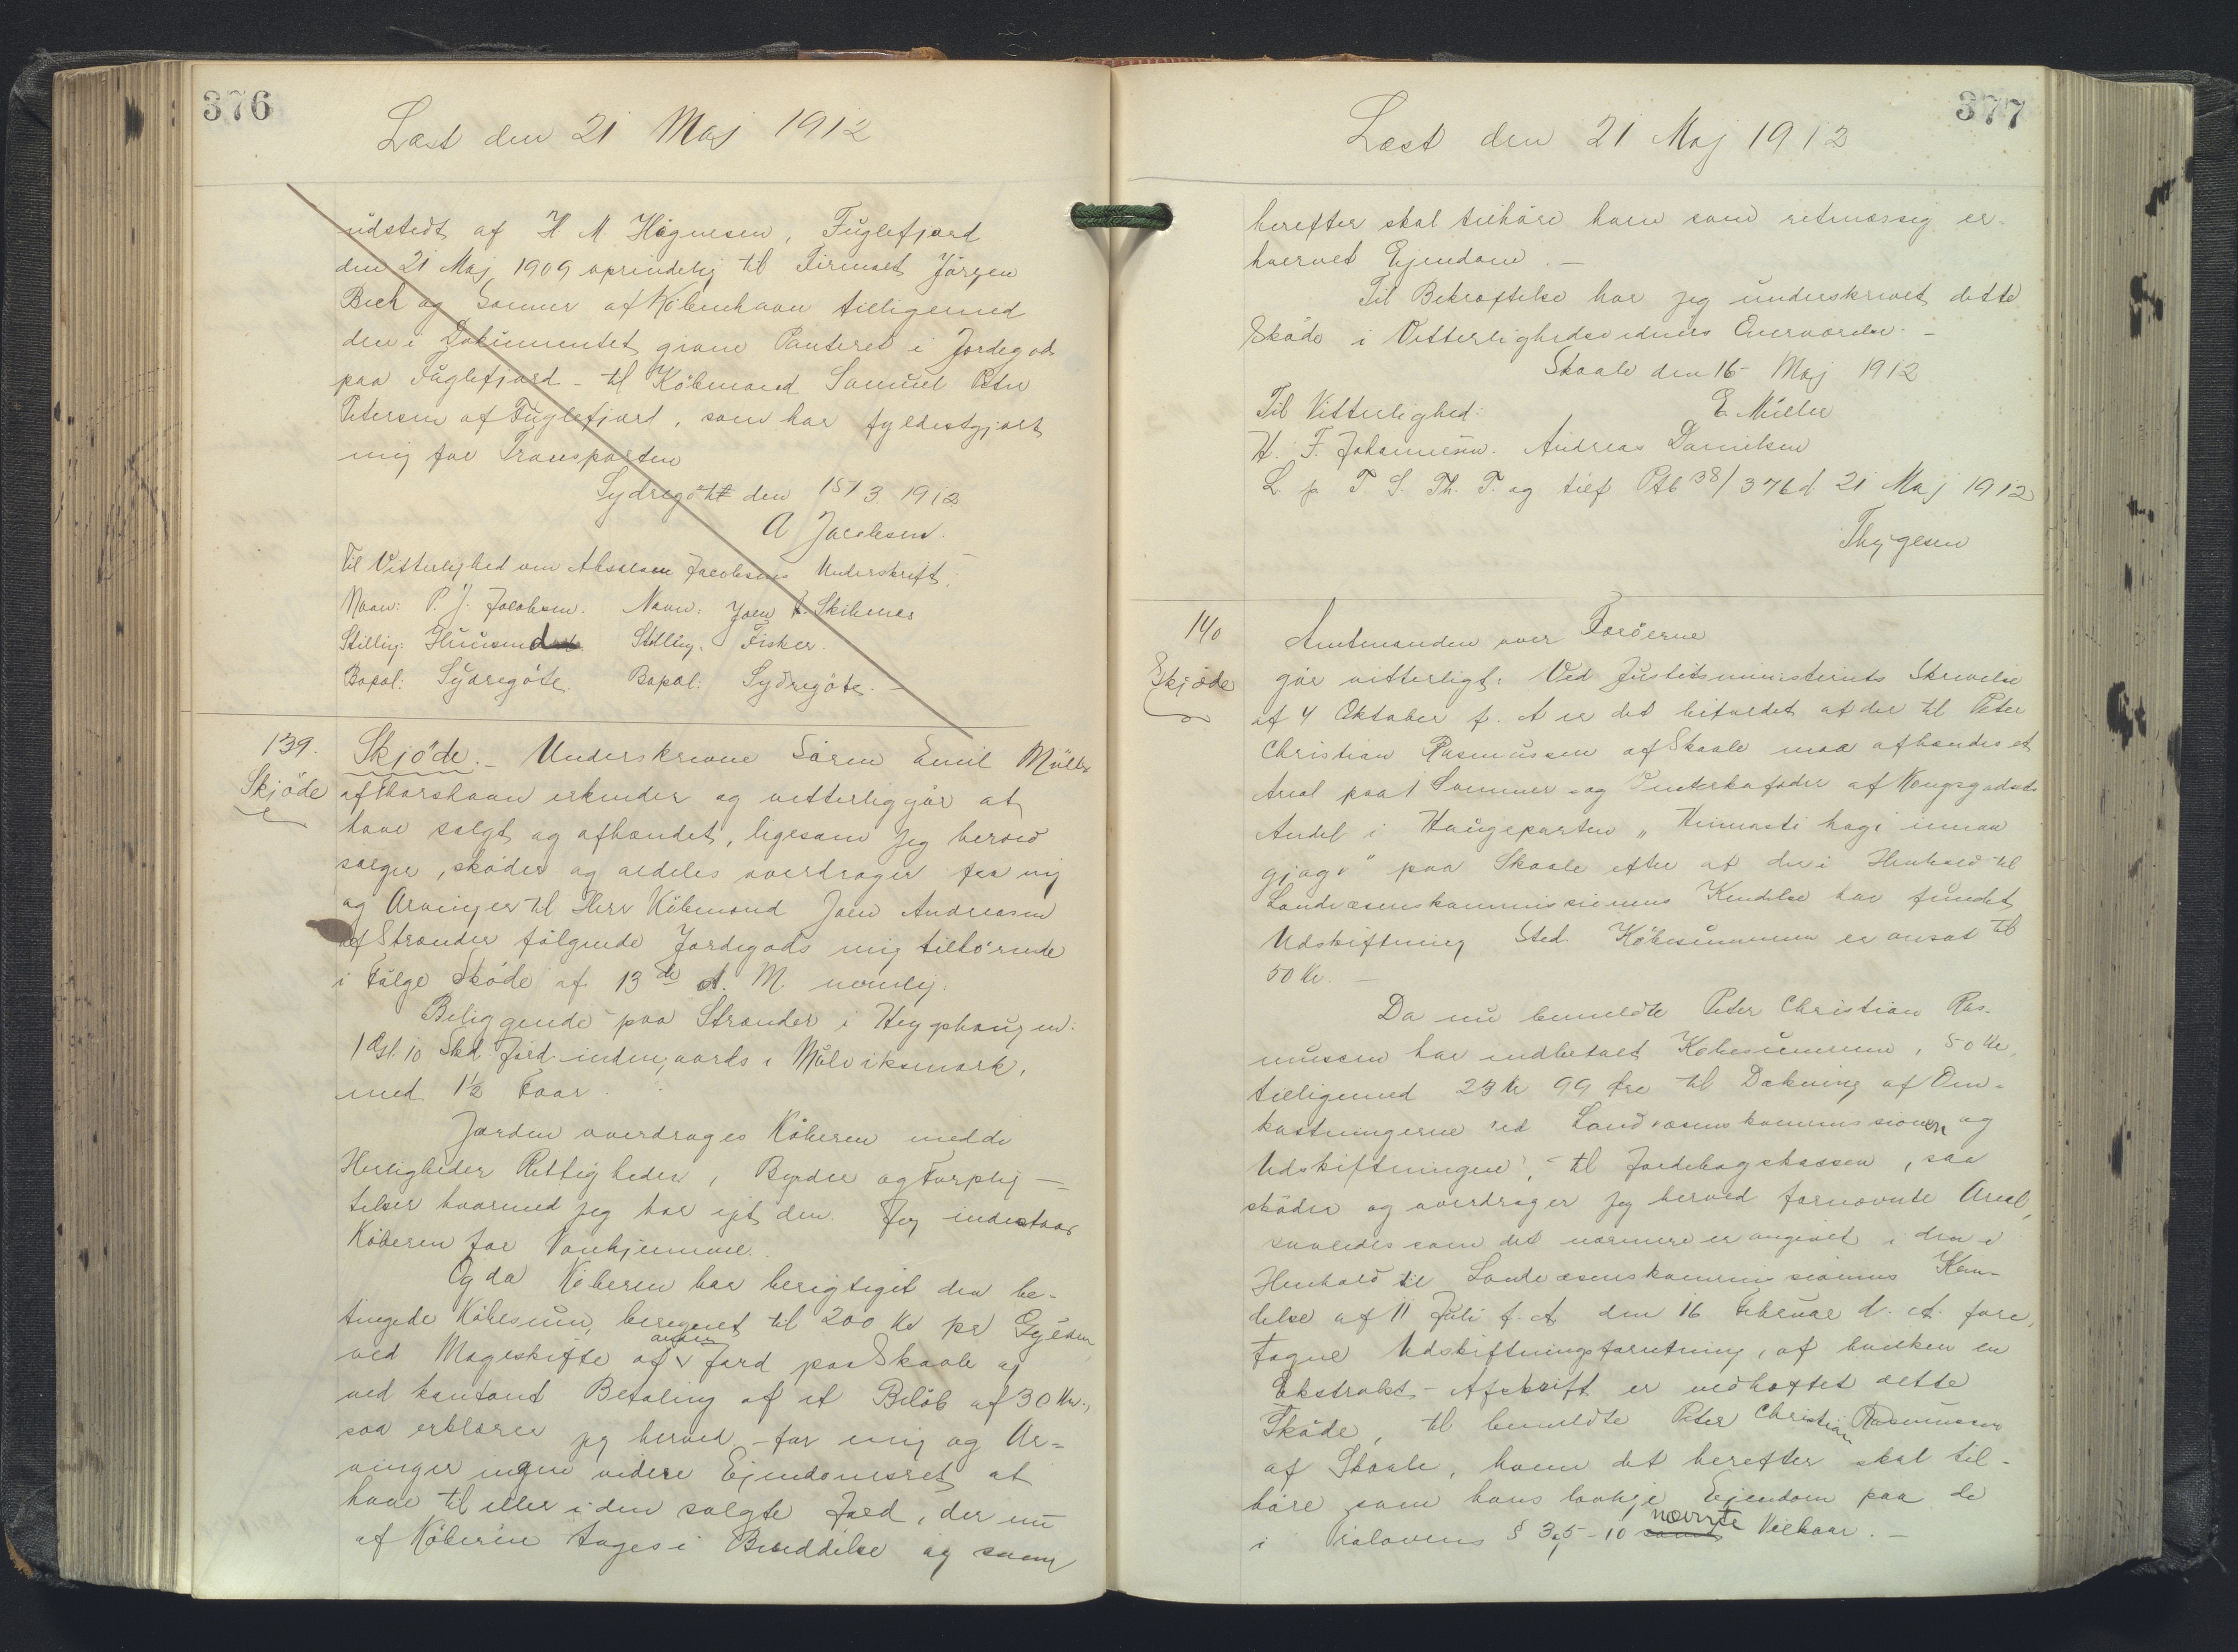 376
Læst den 21 Maj 1912
udstedt af H M Högnesen, Fuglefjord
den 21 Maj 1909 oprindelig til Firmaet Jörgen
Bech og Sønner af Köbenhavn tilligemed
den i Dokumentet givne Panteret i Jordegods
paa Fuglefjord - til Köbmand Samuel Peter
Petersen af Fuglefjord, som har fyldestgjort
mig for Transporten
Sydregöte den 15/3 1912
A Jacobsen.
Til Vitterlighed om Absalom Jacobsens Underskrift.
Navn: P. J. Jacobsen. Navn: Joen Skibenes
Stilling: Huusmd Stilling: Fisker.
Bopæl: Sydregöte. Bopæl: Sydregöte. -
139. Skjöde. - Underskrevne Sören Emil Müller
Skjöde af Thorshavn erkender og vitterliggör at
have solgt og afhændet, ligesom jeg herved
sælger, skøder og aldeles overdrager fra mig
og Arvinger til Herr Köbmand Joen Andreasen
af Strænder fölgende Jordegods mig tilhörende
i Fölge Sköde af 13de d. M. nemlig:
Beliggende paa Strænder i Heygshaugen:
1 Gl. 10 Skd. Jord indengaards i Mulviksmark,
med 1½ Faar.
Jorden overdrages Köberen med de
Herligheder Rettigheder, Byrder og Forplig-
telser hvormed jeg har ejet den. Jeg indestaar
Köberen for Vanhjemmel.
Og da Köberen har berigtiget den be-
tingede Köbesum, beregnet til 200 Kr pr Gylden
ved Mageskifte af anden Jord paa Skaale og
ved kontant Betaling af et Belöb af 30 Kr.,
saa erklærer jeg herved - for mig og Ar-
vinger ingen videre Ejendomsret at
have til eller i den solgte Jord, der nu
af Köberen tages i Besiddelse og som
377
Læst den 21 Maj 1912
herefter skal tilhöre ham som retmæssig er-
hvervet Ejendom. -
Til Bekræftelse har jeg underskrevet dette
Sköde i Vitterlighedsvidners Overværelse. -
Skaale den 16 - Maj 1912
Til Vitterlighed: E. Müller
H. F. Johannesen. Andreas Danielsen
L. p. T. S. Th. T. og tilf Ptb 38/376 d 21 Maj 1912
Thygesen
140 Amtmanden over Færöerne
Skjöde gör vitterligt: Ved Justitsministeriets Skrivelse
af 4 Oktober f. A er det bifaldet at der til Peter
Christian Rasmussen af Skaale maa afhændes et
Areal paa 1 Sommer- og Vinterkofoder af Kongsgodsets
Andel i Haugeparten "Heimasti hagi innan
gjagv" paa Skaale efter at der i Henhold til
Landvæsenskommissionens Kendelse har fundet
Udskiftning Sted. Köbesummen er ansat til
50 Kr. -
Da nu bemeldte Peter Christian Ras-
mussen har indbetalt Köbesummen, 50 Kr,
tilligemed 23 Kr 99 Øre til Dækning af Om-
kostningerne ved Landvæsenskommissionen og
Udskiftningen, - til Jordebogskassen, saa
sköder og overdrager jeg herved fornævnte Areal,
saaledes som det nærmere er angivet i den i
Henhold til Landvæsenskommissionens Ken-
delse af 11 Juli f. A. den 16 Februar d. A. fore-
tagne Udskiftningsforretning, af hvilken en
Ekstrakt-Afskrift er vedhæftet dette
Sköde, til bemeldte Peter Christian Rasmussen
af Skaale, hvem det herefter skal til-
höre som hans lovlige Ejendom paa de
i lovens § 3, 5-10 nævnte Vilkaar. -